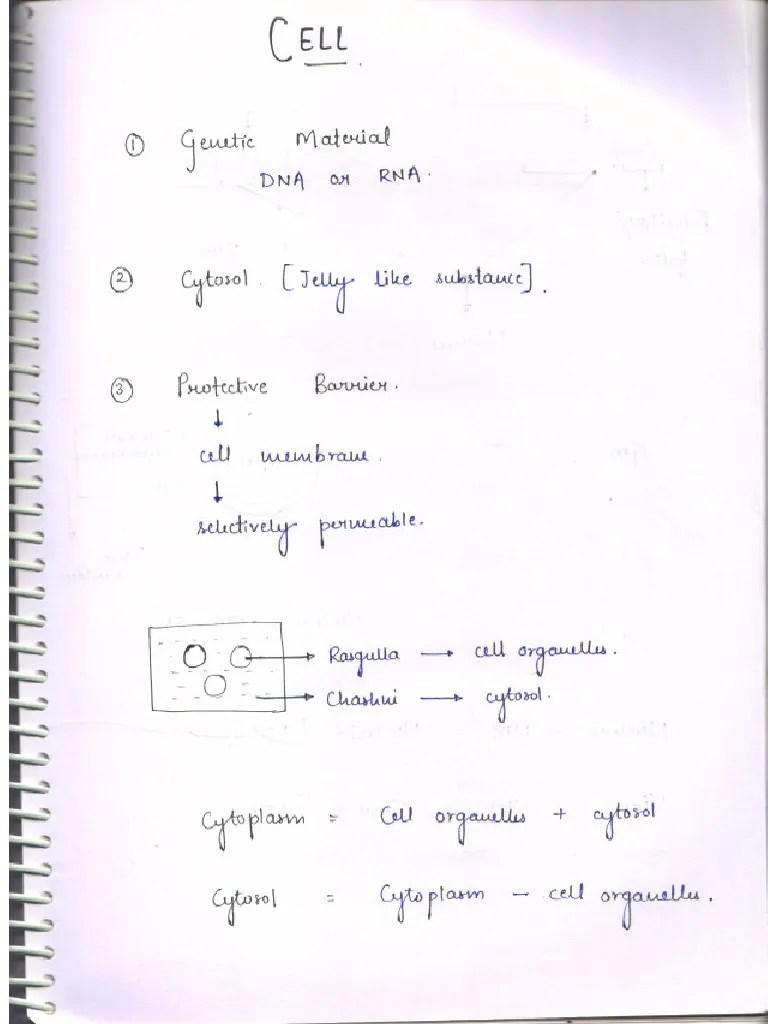 CELL.
① Genetic Material
DNA or RNA.
② Cytosol. [Jelly like substance].
③ Protective Barrier.
↓
cell membrane.
↓
selectively permeable.
→ Rasgulla → cell organelles.
→ Chashni → cytosol.
Cytoplasm = Cell organelles + cytosol
Cytosol = Cytoplasm − cell organelles.